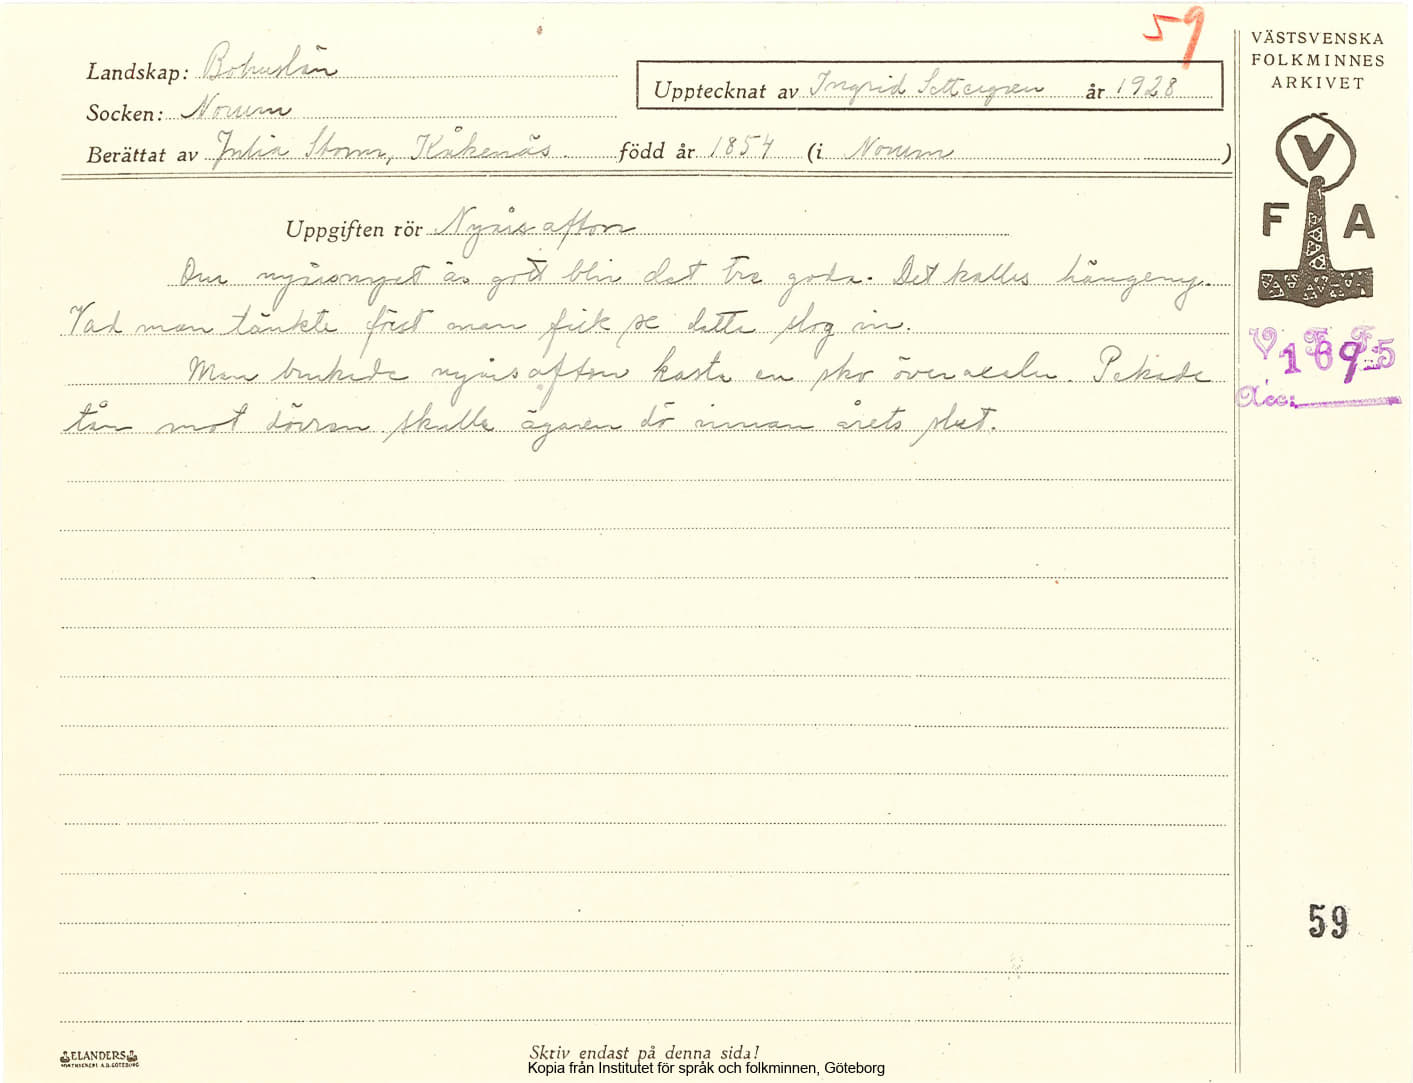 59
VÄSTSVENSKA
FOLKMINNES
ARKIVET
Landskap: Bohuslän
Upptecknat av Ingrid Settergren år 1928
Socken: Norum
Berättat av Julia Storm, Kåkenäs. född år 1854 (i Norum)
V
F A
Uppgiften rör Nyårsafton
Om nyårsnyet är gott blir det tre goda. Det kalles hängeny.
Vad man tänkte först man fick se detta slog in.
Man brukade nyårsafton kasta en sko över axeln. Pekade
tån mot dörren skulle ägaren dö innan årets slut.
V. F. F.
1695
Acc:
59
ELANDERS
Skriv endast på denna sida!
Kopia från Institutet för språk och folkminnen, Göteborg